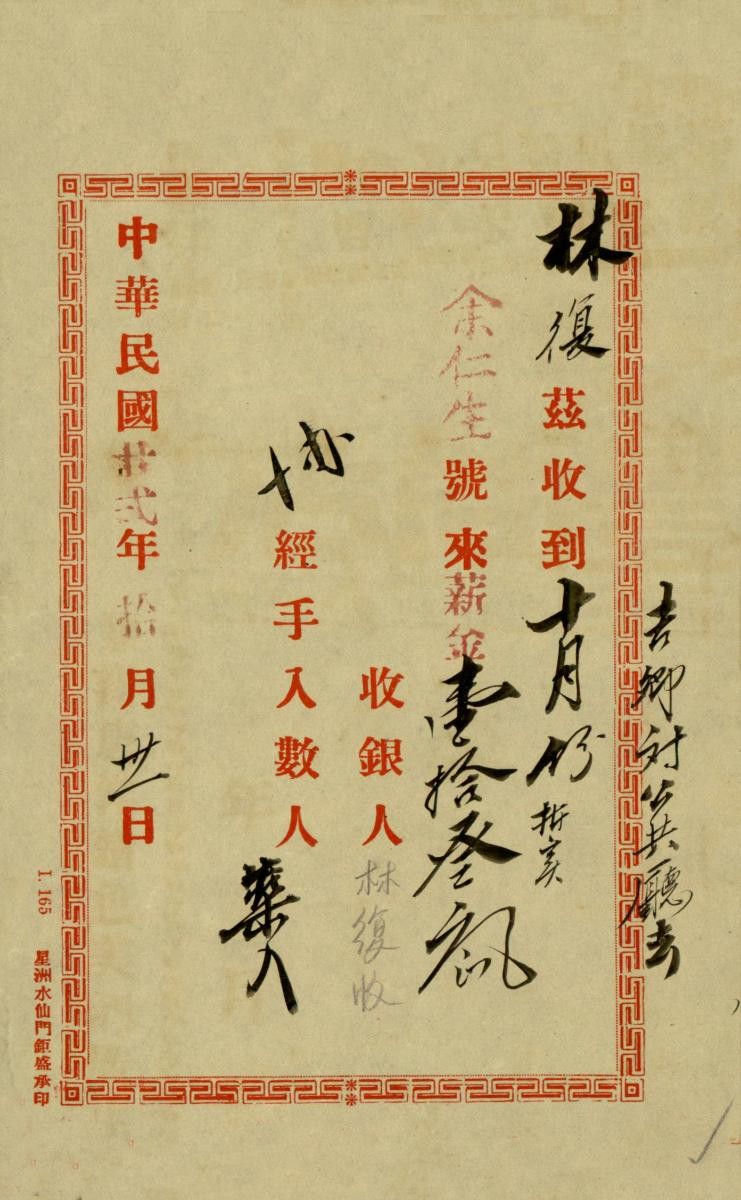 吉鄉対公共廳去
林復茲收到十月份折实
余仁生號來薪金壹拾叁
收銀人林復收
經手入數人葉入
中華民國廿弍年拾月卅一日
I. 165 星洲水仙門鉅盛承印